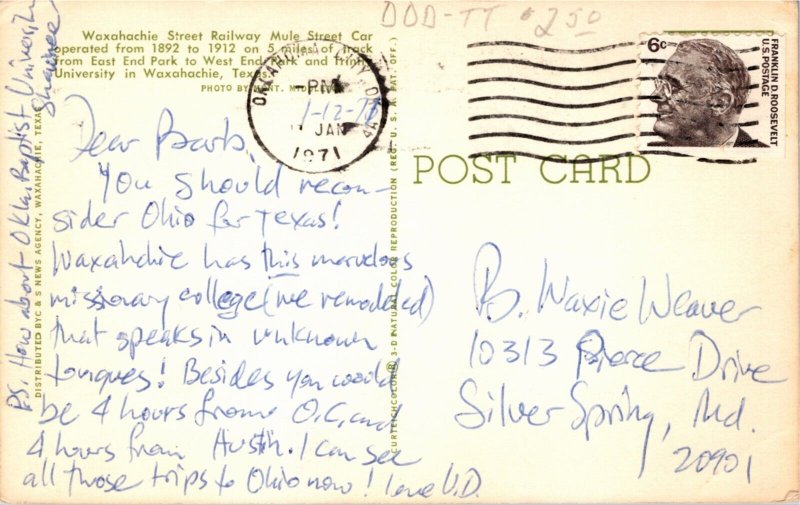 Waxahachie Street Railway Mule Street Car
operated from 1892 to 1912 on 5 miles of track
from East End Park to West End Park and Trinity
University in Waxahachie, Texas.
PHOTO BY
DOD-TT $2.50
OKLAHOMA CITY, OK
PM
JAN
1971
1-12-71
6c
FRANKLIN D. ROOSEVELT
U.S. POSTAGE
POST CARD
Dear Barb,
You should recon-
sider Ohio for Texas!
Waxahchie has this marvelous
missionary college (we remodeled)
that speaks in unknown
tongues! Besides you would
be 4 hours from O.C. and
4 hours from Austin. I can see
all those trips to Ohio now! Love V.D.
P.S. How about Okla. Baptist University
Shawnee
DISTRIBUTED BY C & S NEWS AGENCY, WAXAHACHIE, TEXAS
CURTEICHCOLOR® 3-D NATURAL COLOR REPRODUCTION (REG. U. S. A. PAT. OFF.)
B. Waxie Weaver
10313 Pierce Drive
Silver Spring, Md.
20901